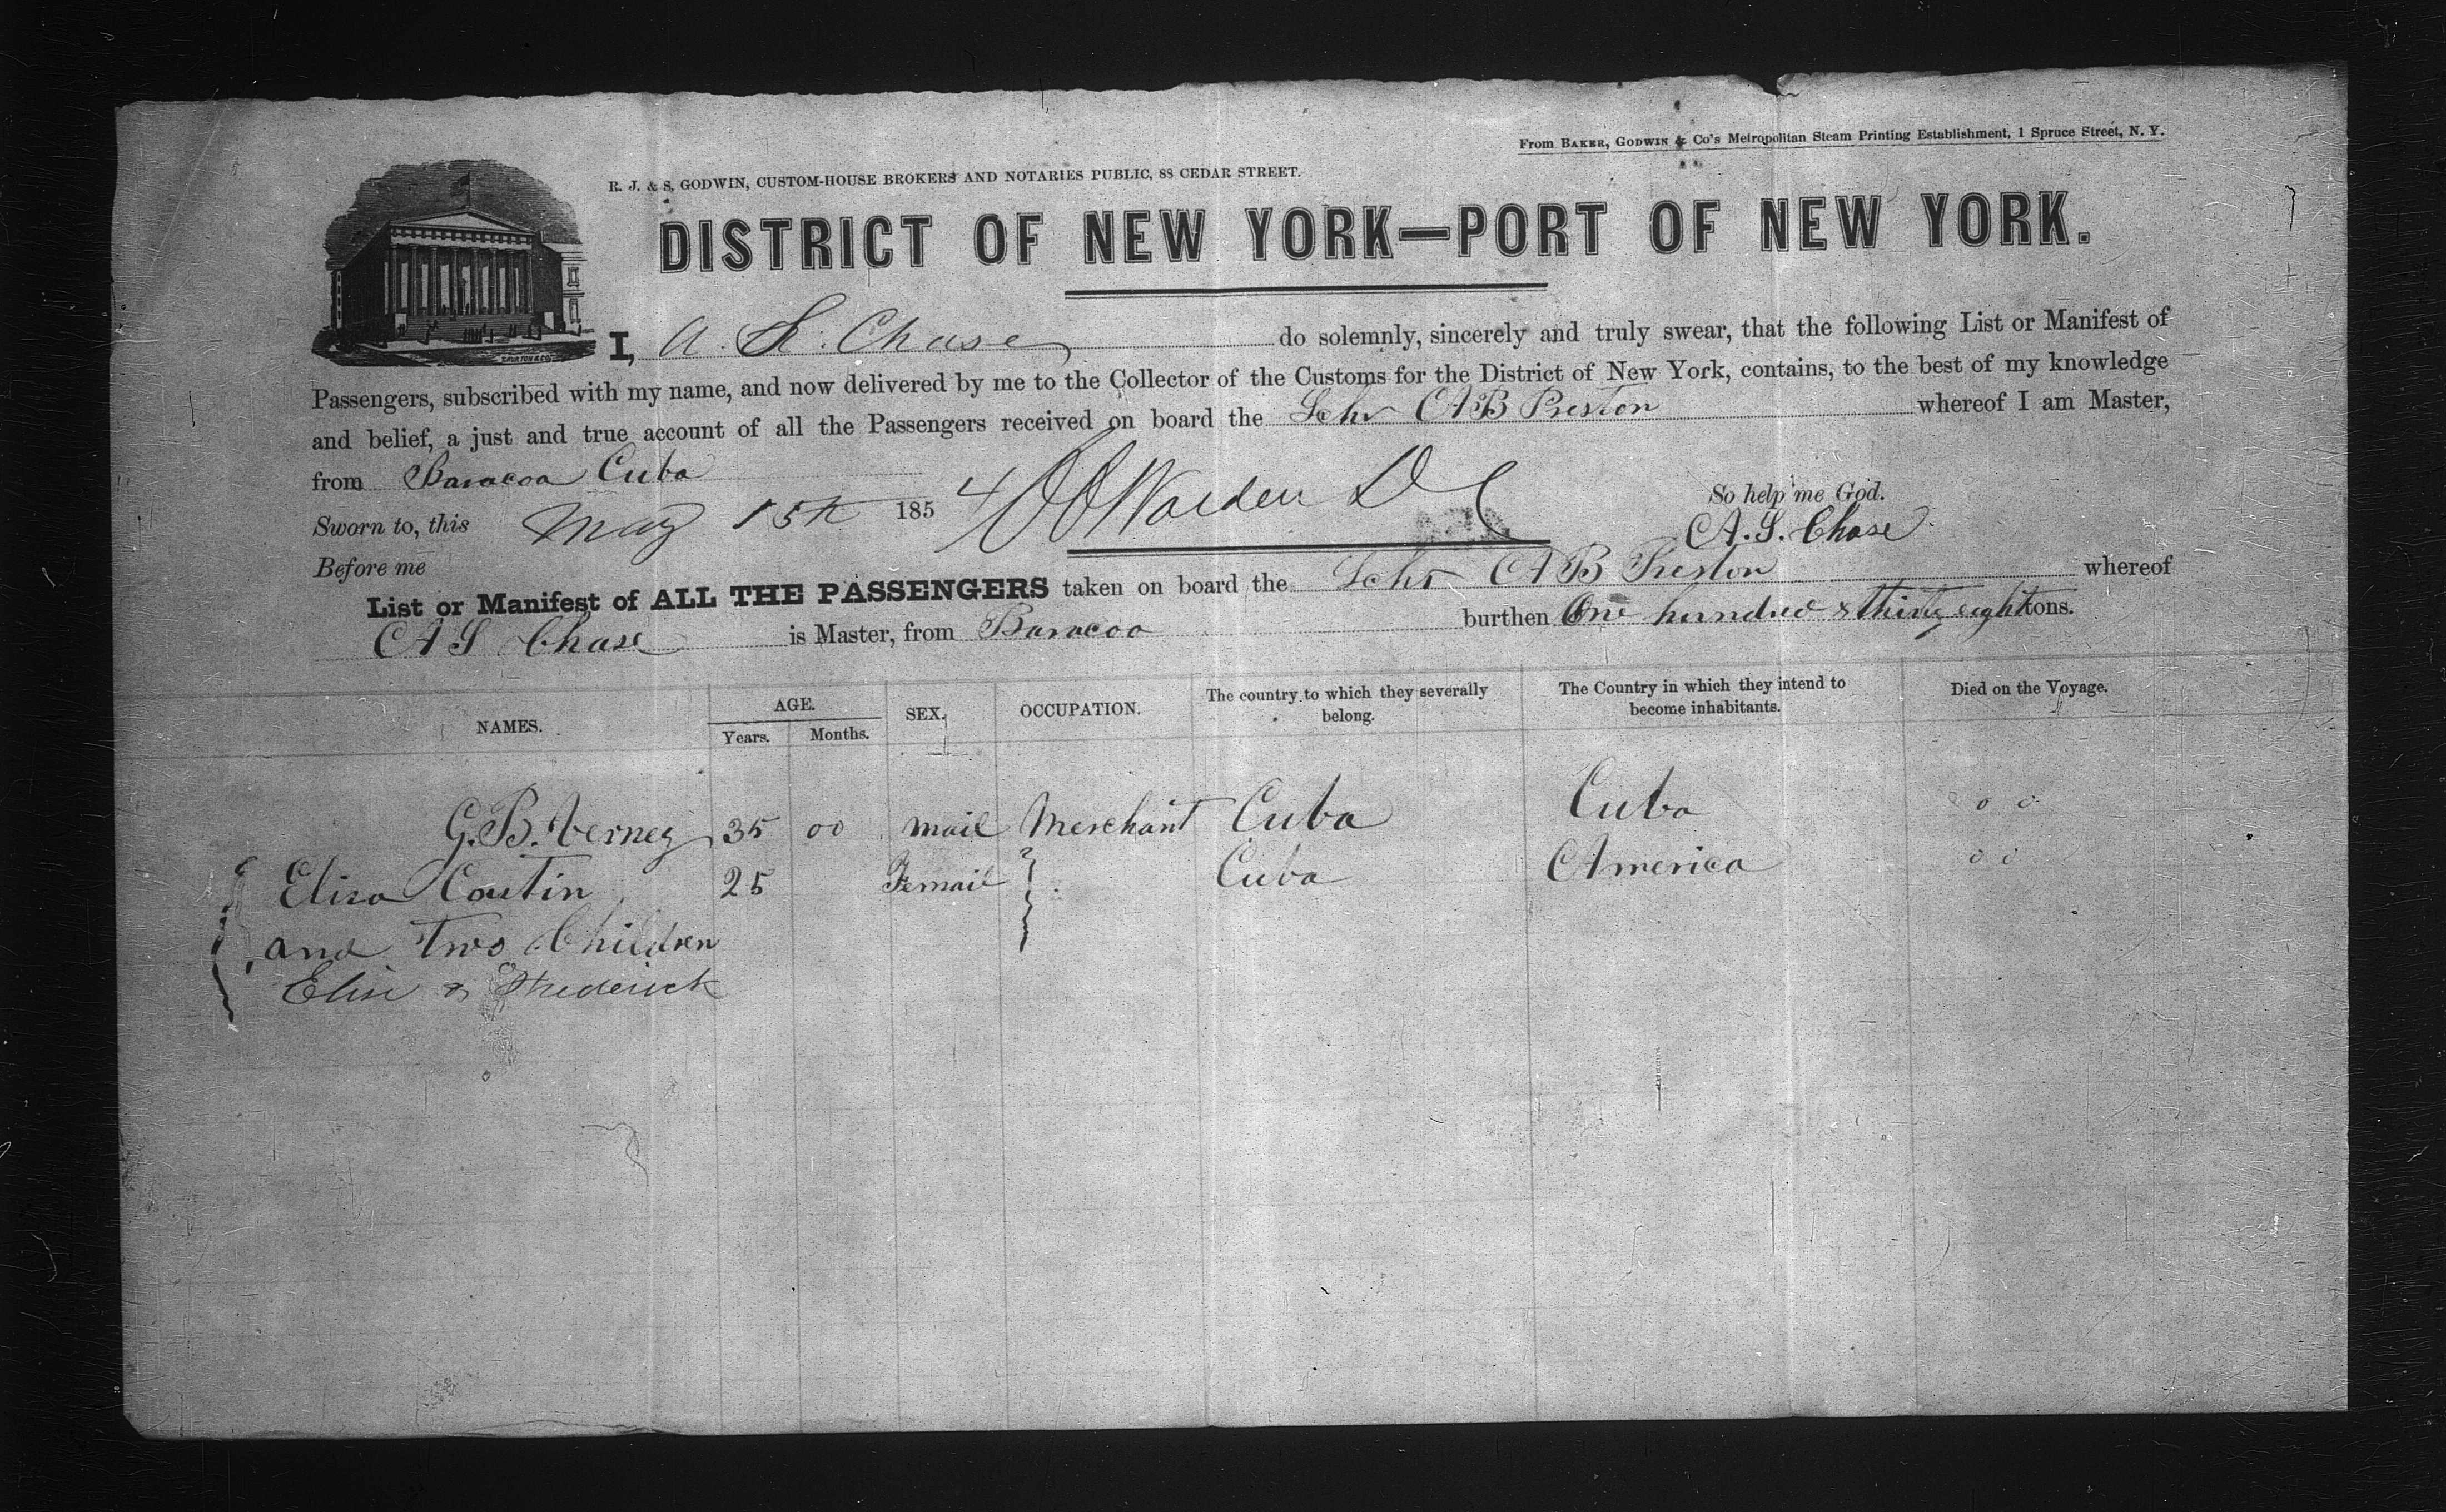 From BAKER, GODWIN & Co's Metropolitan Steam Printing Establishment, 1 Spruce Street, N. Y.
R. J. & S. GODWIN, CUSTOM-HOUSE BROKERS AND NOTARIES PUBLIC, 88 CEDAR STREET.
DISTRICT OF NEW YORK—PORT OF NEW YORK.
I, A. S. Chase do solemnly, sincerely and truly swear, that the following List or Manifest of
Passengers, subscribed with my name, and now delivered by me to the Collector of the Customs for the District of New York, contains, to the best of my knowledge
and belief, a just and true account of all the Passengers received on board the Schr A B Preston whereof I am Master,
from Baracoa Cuba
So help me God.
Sworn to, this May 15th 1854
A. S. Chase
Before me
List or Manifest of ALL THE PASSENGERS taken on board the Schr A B Preston whereof
A S Chase is Master, from Baracoa burthen One hundred & thirty eight tons.
NAMES. AGE. Years. Months. SEX. OCCUPATION. The country to which they severally belong. The Country in which they intend to become inhabitants. Died on the Voyage.
G. B. 35 00 mail Merchant Cuba Cuba 0 0
Elisa 25 Femail Cuba America 0 0
and Two Children
Elise & Frederick